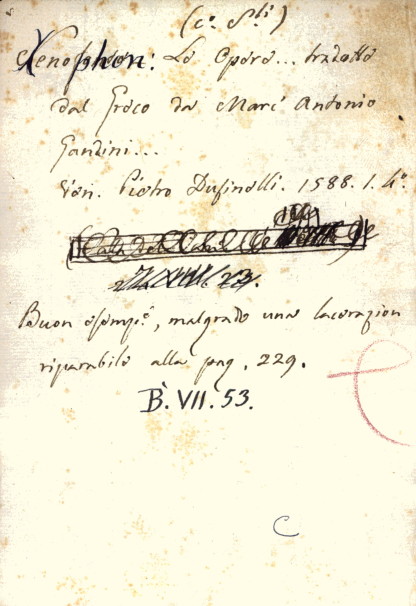 (c. S.ti)
Xenophon: Le Opere... tradotte
dal Greco da Marc' Antonio
Gandini...
Ven. Pietro Dusinelli. 1588. 1. 4°.
23.
Buon esemp.e, malgrado una lacerazion
riparabile alla pag. 229.
B. VII. 53.
C